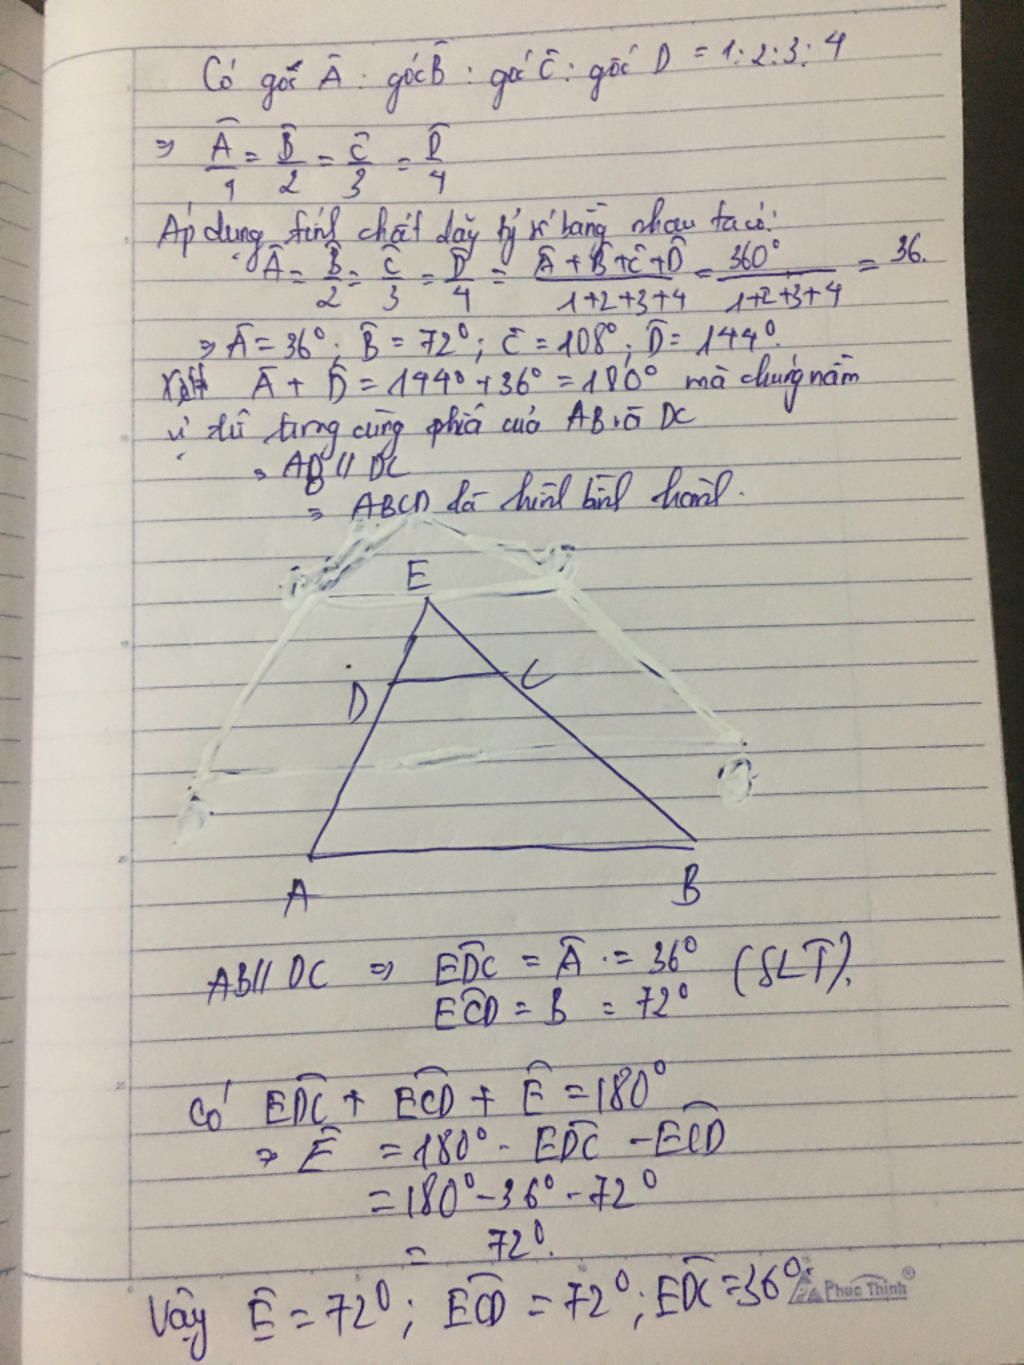 Có góc Â : góc B̂ : góc Ĉ : góc D = 1:2:3:4
⇒ Â/1 = B̂/2 = Ĉ/3 = D̂/4
Áp dụng tính chất dãy tỷ số bằng nhau ta có:
Â = B̂/2 = Ĉ/3 = D̂/4 = (Â + B̂ + Ĉ + D̂)/(1+2+3+4) = 360°/(1+2+3+4) = 36.
⇒ Â = 36°; B̂ = 72°; Ĉ = 108°; D̂ = 144°.
Â + D̂ = 144° + 36° = 180° mà chúng nằm
vị trí trong cùng phía của AB và DC
⇒ AB // DC
⇒ ABCD là hình bình hành.
E
D C
A B
AB // DC ⇒ EDC = Â = 36° (SLT).
ECD = B = 72°
Có EDC + ECD + Ê = 180°
⇒ Ê = 180° - EDC - ECD
= 180° - 36° - 72°
= 72°.
Vậy Ê = 72°; ECD = 72°; EDC = 36°.
Phúc Thịnh®